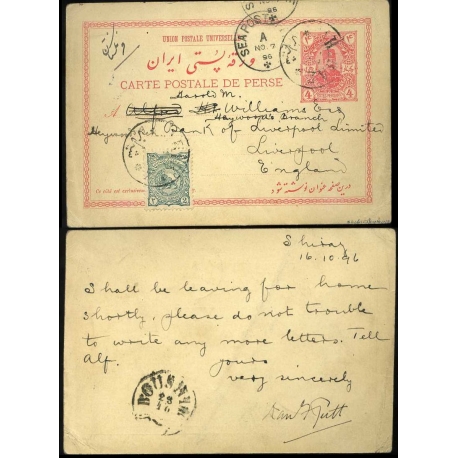 SEA POST
96
UNION POSTALE UNIVERSELLE
SEA POST
A
NO. 7
96
ورقهٔ پستی ایران
CARTE POSTALE DE PERSE
4 4
Harold M.
A Alfred Williams Esq
Heywood's Branch
Bank of Liverpool Limited
Liverpool
England
Ce côté est exclusivement
Shiraz
16.10.96
I shall be leaving for home
shortly, please do not trouble
to write any more letters. Tell
Alf. yours
very sincerely
BOUSHIR